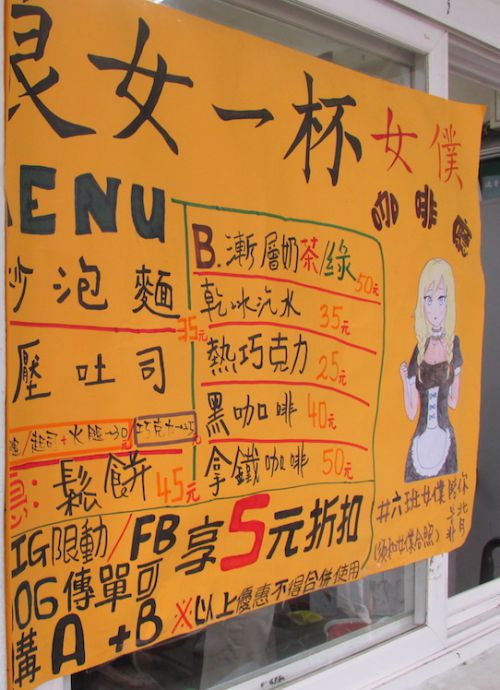 女一杯女僕
咖啡
MENU
B.漸層奶茶/綠 50元
泡麵 35元
乾冰汽水 35元
壓吐司
熱巧克力 25元
/起司+火腿→30/巧克力→25元
黑咖啡 40元
鬆餅 45元
拿鐵咖啡 50元
#六班女僕陪你
IG限動/FB享5元折扣
OG傳單可
購A+B ※以上優惠不得合併使用